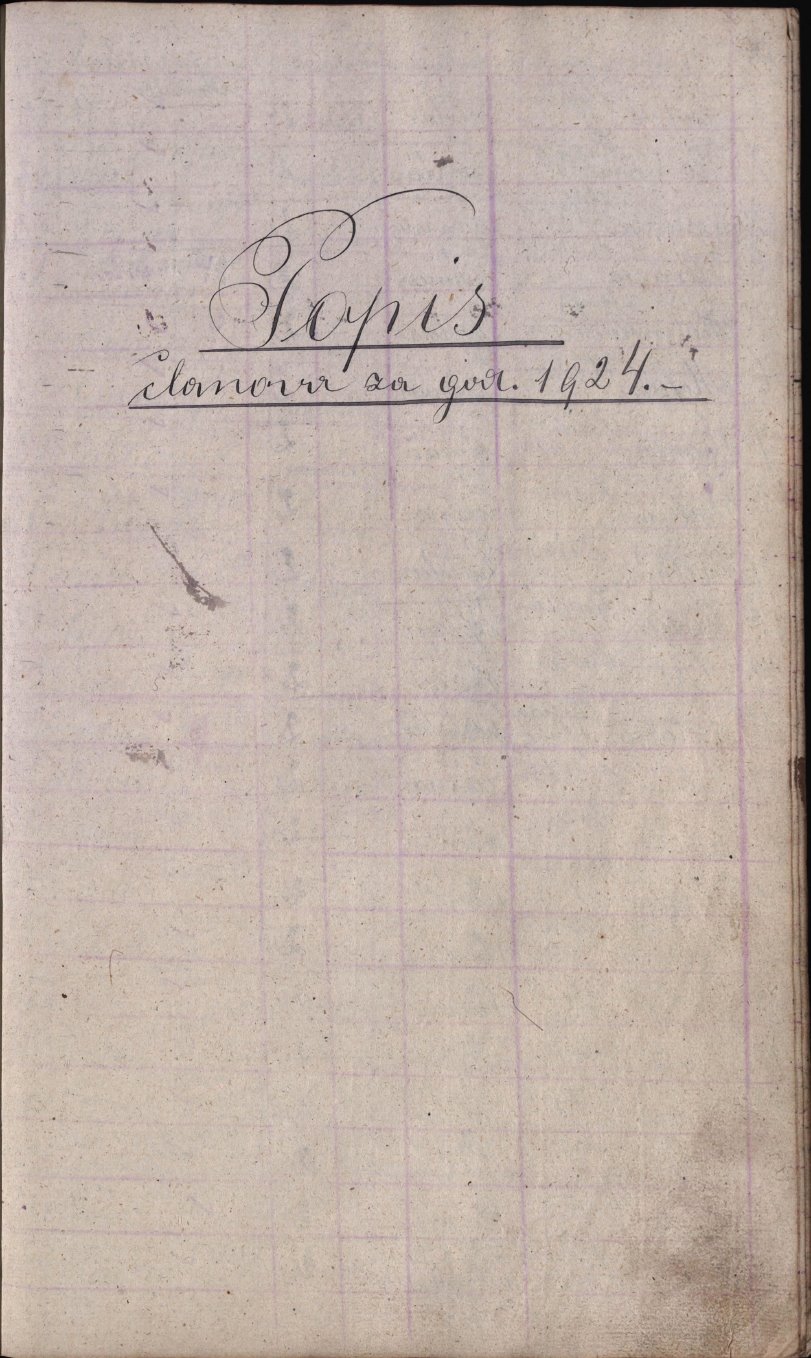 Popis
članova za god. 1924.-